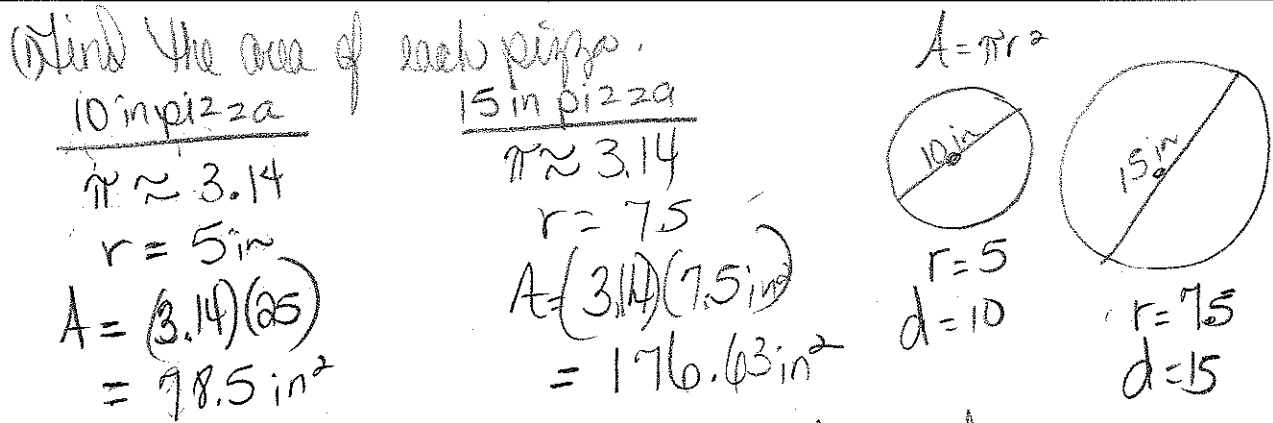 Find the area of each pizza.
10 in pizza
π ≈ 3.14
r = 5 in
A = (3.14)(25)
= 78.5 in²
15 in pizza
π ≈ 3.14
r = 7.5
A = (3.14)(7.5 in²)
= 176.63 in²
A = πr²
10 in
r = 5
d = 10
15 in
r = 7.5
d = 15